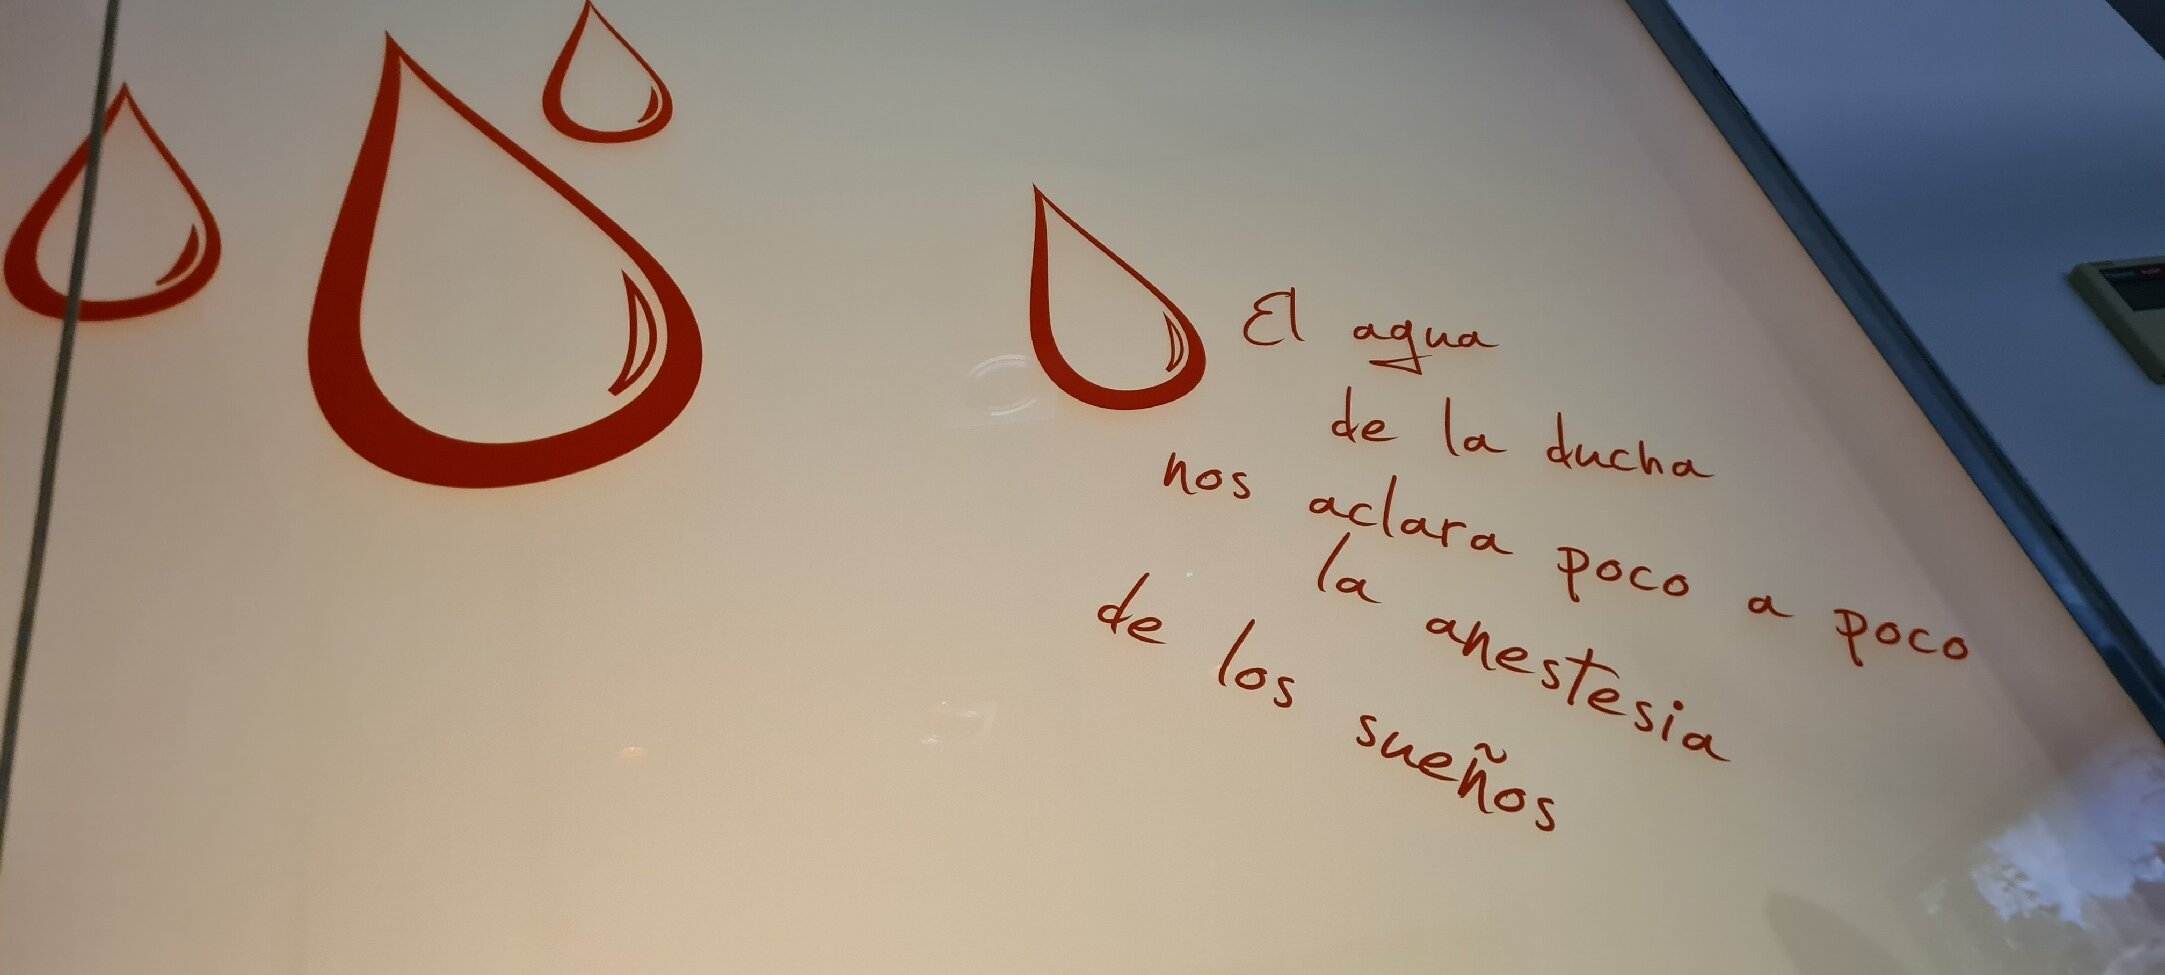 El agua
de la ducha
nos aclara poco a poco
la anestesia
de los sueños